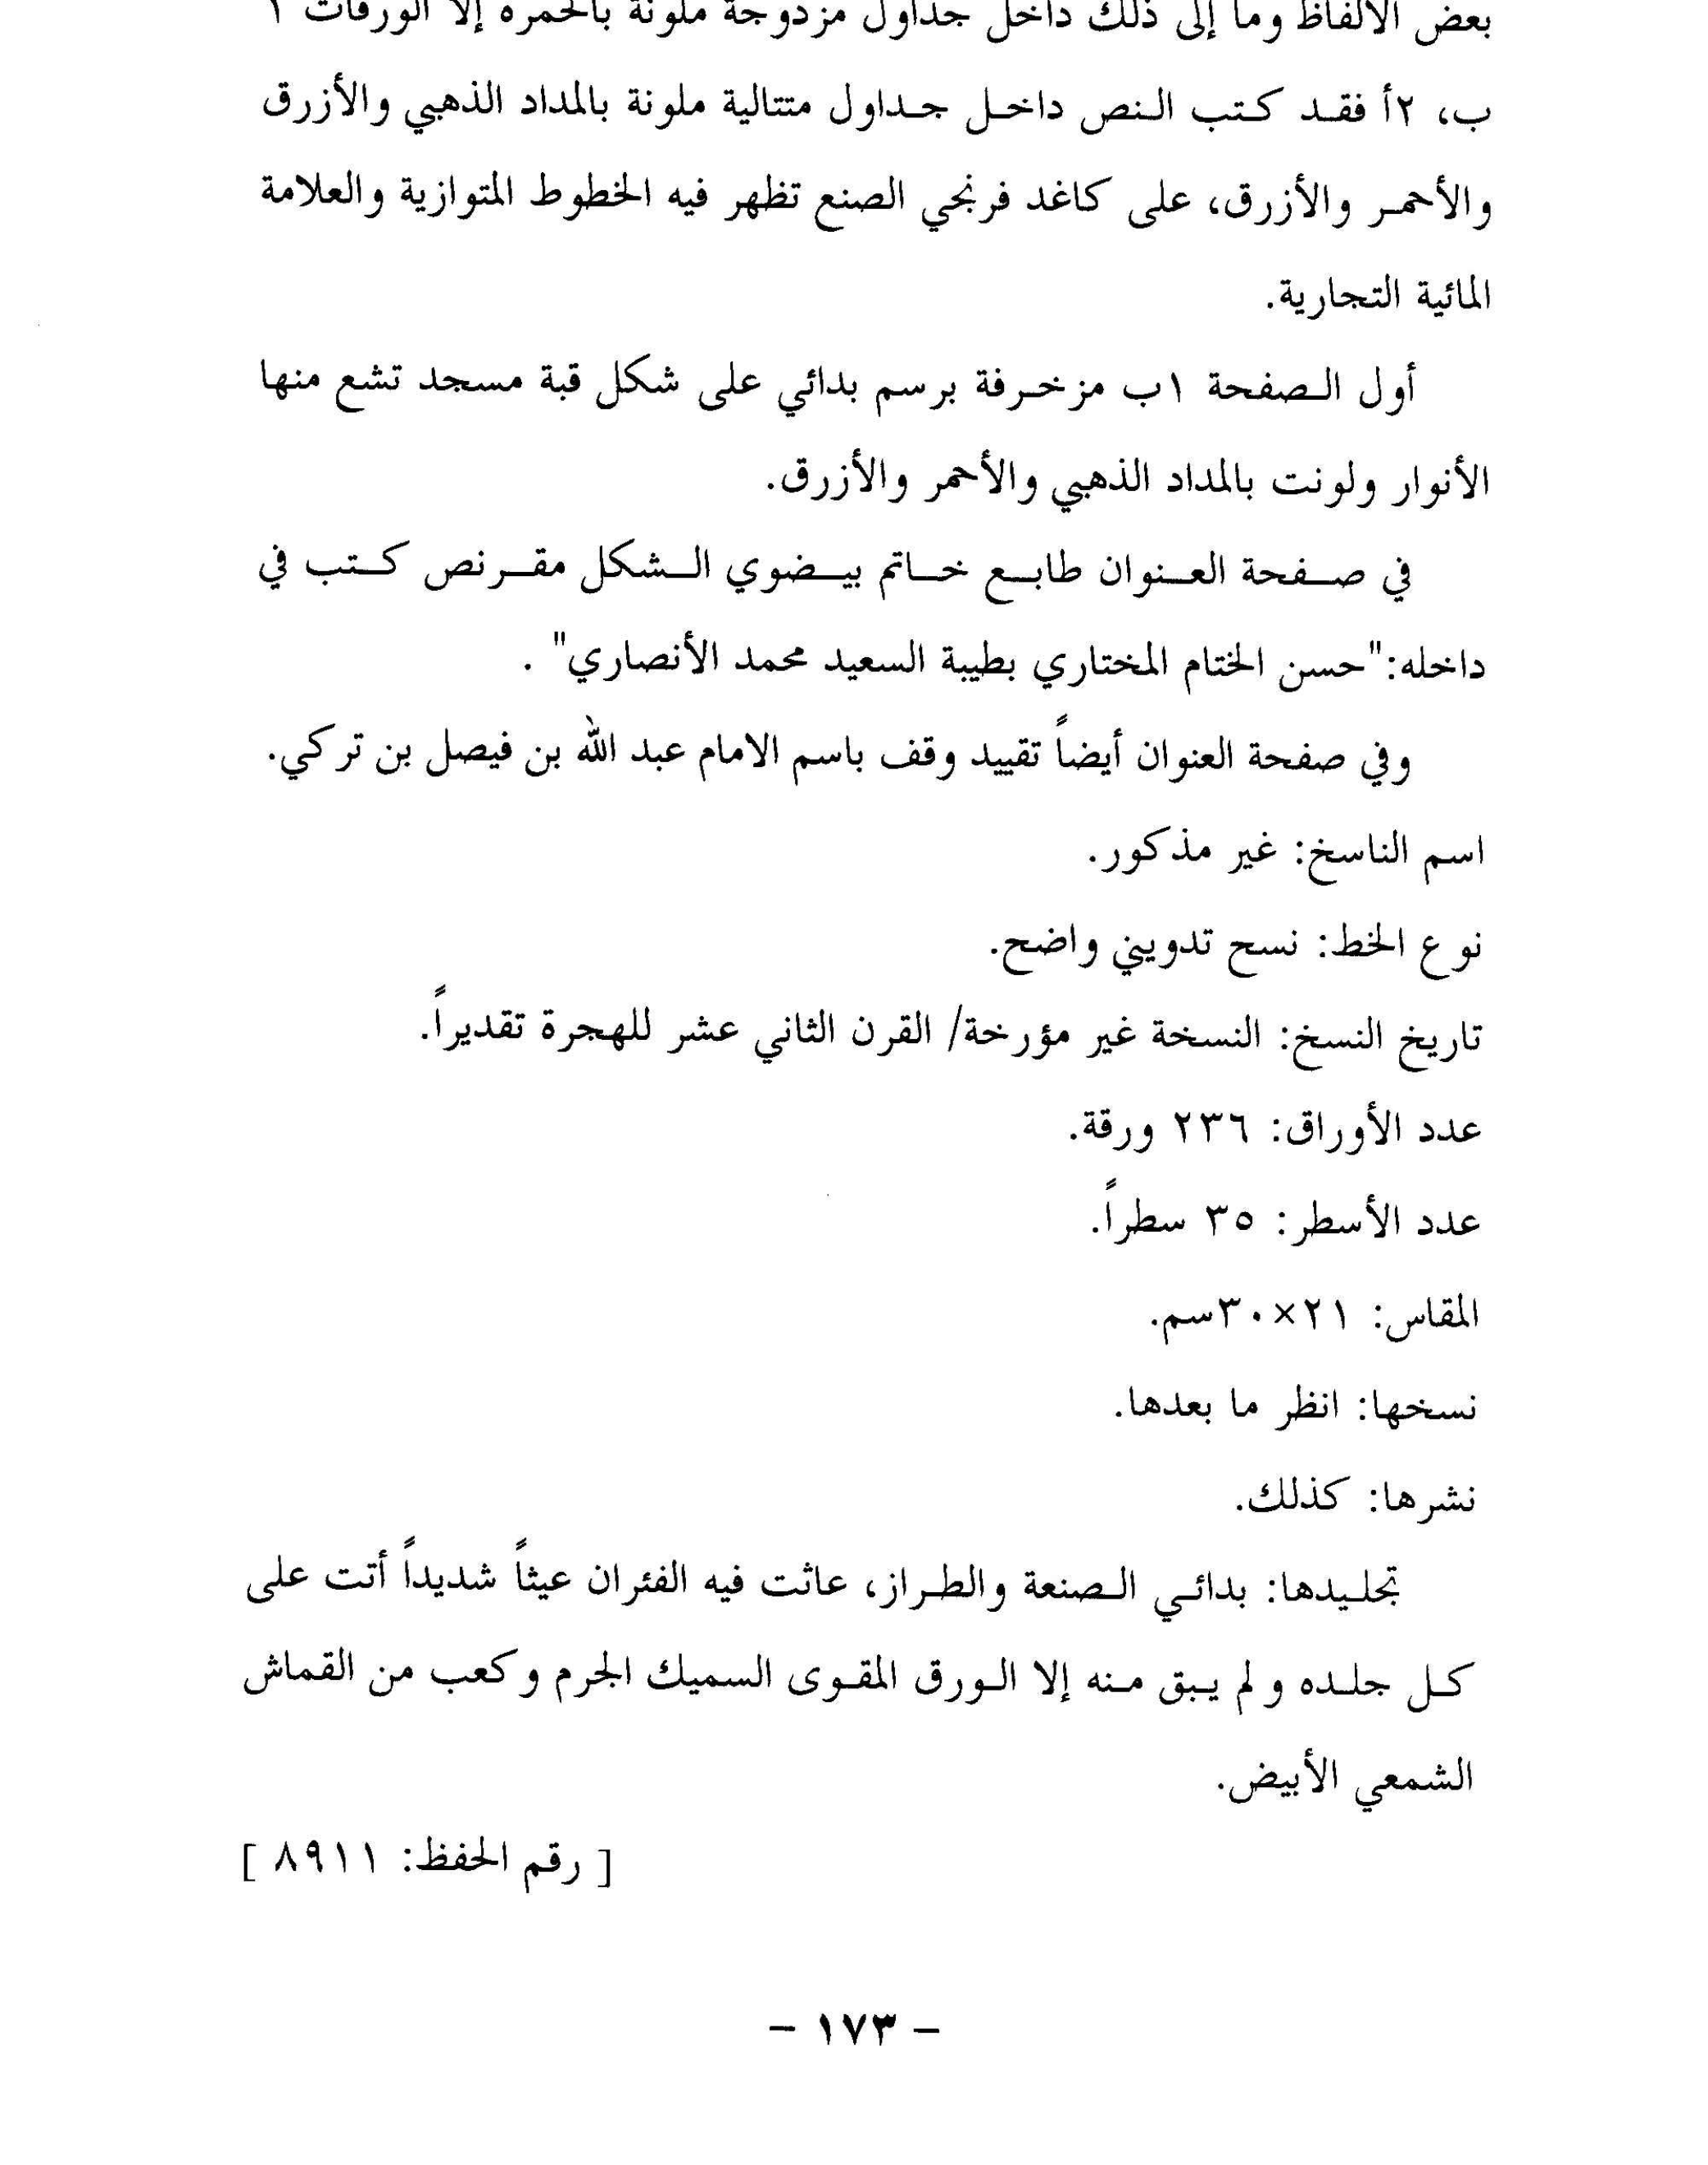 بعض الألفاظ وما إلى ذلك داخل جداول مزدوجة ملونة بالحمرة إلا الورقات ١
ب، ٢أ فقد كتب النص داخل جداول متتالية ملونة بالمداد الذهبي والأزرق
والأحمر والأزرق، على كاغد فرنجي الصنع تظهر فيه الخطوط المتوازية والعلامة
المائية التجارية.
أول الصفحة ١ب مزخرفة برسم بدائي على شكل قبة مسجد تشع منها
الأنوار ولونت بالمداد الذهبي والأحمر والأزرق.
في صفحة العنوان طابع خاتم بيضوي الشكل مقرنص كتب في
داخله:"حسن الختام المختاري بطيبة السعيد محمد الأنصاري" .
وفي صفحة العنوان أيضاً تقييد وقف باسم الامام عبد الله بن فيصل بن تركي.
اسم الناسخ: غير مذكور.
نوع الخط: نسح تدويني واضح.
تاريخ النسخ: النسخة غير مؤرخة/ القرن الثاني عشر للهجرة تقديراً.
عدد الأوراق: ٢٣٦ ورقة.
عدد الأسطر: ٣٥ سطراً.
المقاس: ٢١×٣٠سم.
نسخها: انظر ما بعدها.
نشرها: كذلك.
تجليدها: بدائي الصنعة والطراز، عاثت فيه الفئران عيثاً شديداً أتت على
كل جلده ولم يبق منه إلا الورق المقوى السميك الجرم وكعب من القماش
الشمعي الأبيض.
[ رقم الحفظ: ٨٩١١ ]
- ١٧٣ -